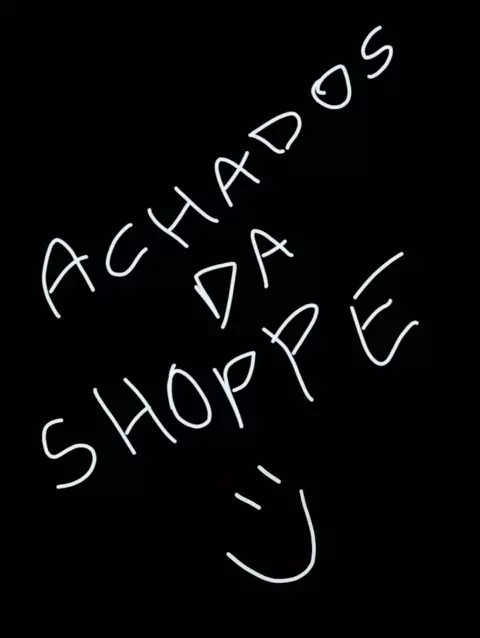 ACHADOS
DA
SHOPPE